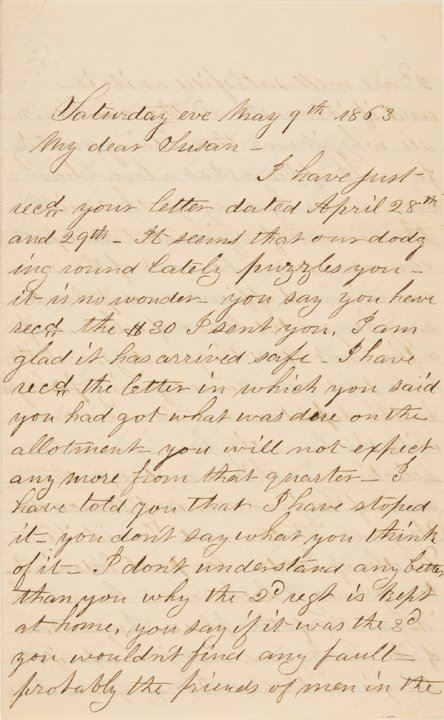 Saturday eve May 9th 1863
My dear Susan -
I have just
recd your letter dated April 28th
and 29th - It seems that our dodg
ing round lately puzzles you -
it is no wonder you say you have
recd the $30 I sent you, I am
glad it has arrived safe - I have
recd the letter in which you said
you had got what was due on the
allotment - you will not expect
any more from that quarter - I
have told you that I have stoped
it - you don't say what you think
of it - I don't understand any better
than you why the 2d regt is kept
at home, you say if it was the 3d
you wouldn't find any fault -
probably the friends of men in the